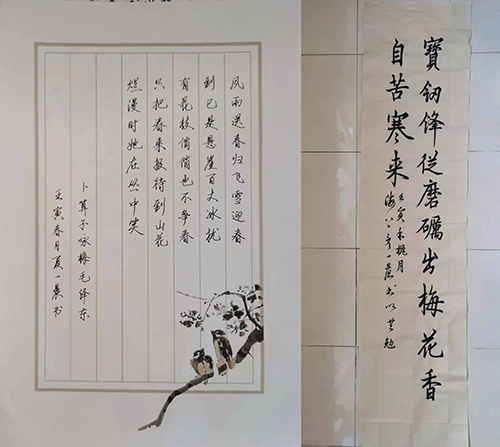 风雨送春归飞雪迎春
到已是悬崖百丈冰犹
有花枝俏俏也不争春
只把春来报待到山花
烂漫时她在丛中笑
卜算子咏梅毛泽东
壬寅春月夏一晨书
寶釼鋒從磨礪出梅花香
自苦寒来
壬寅年桃月
一晨书以共勉